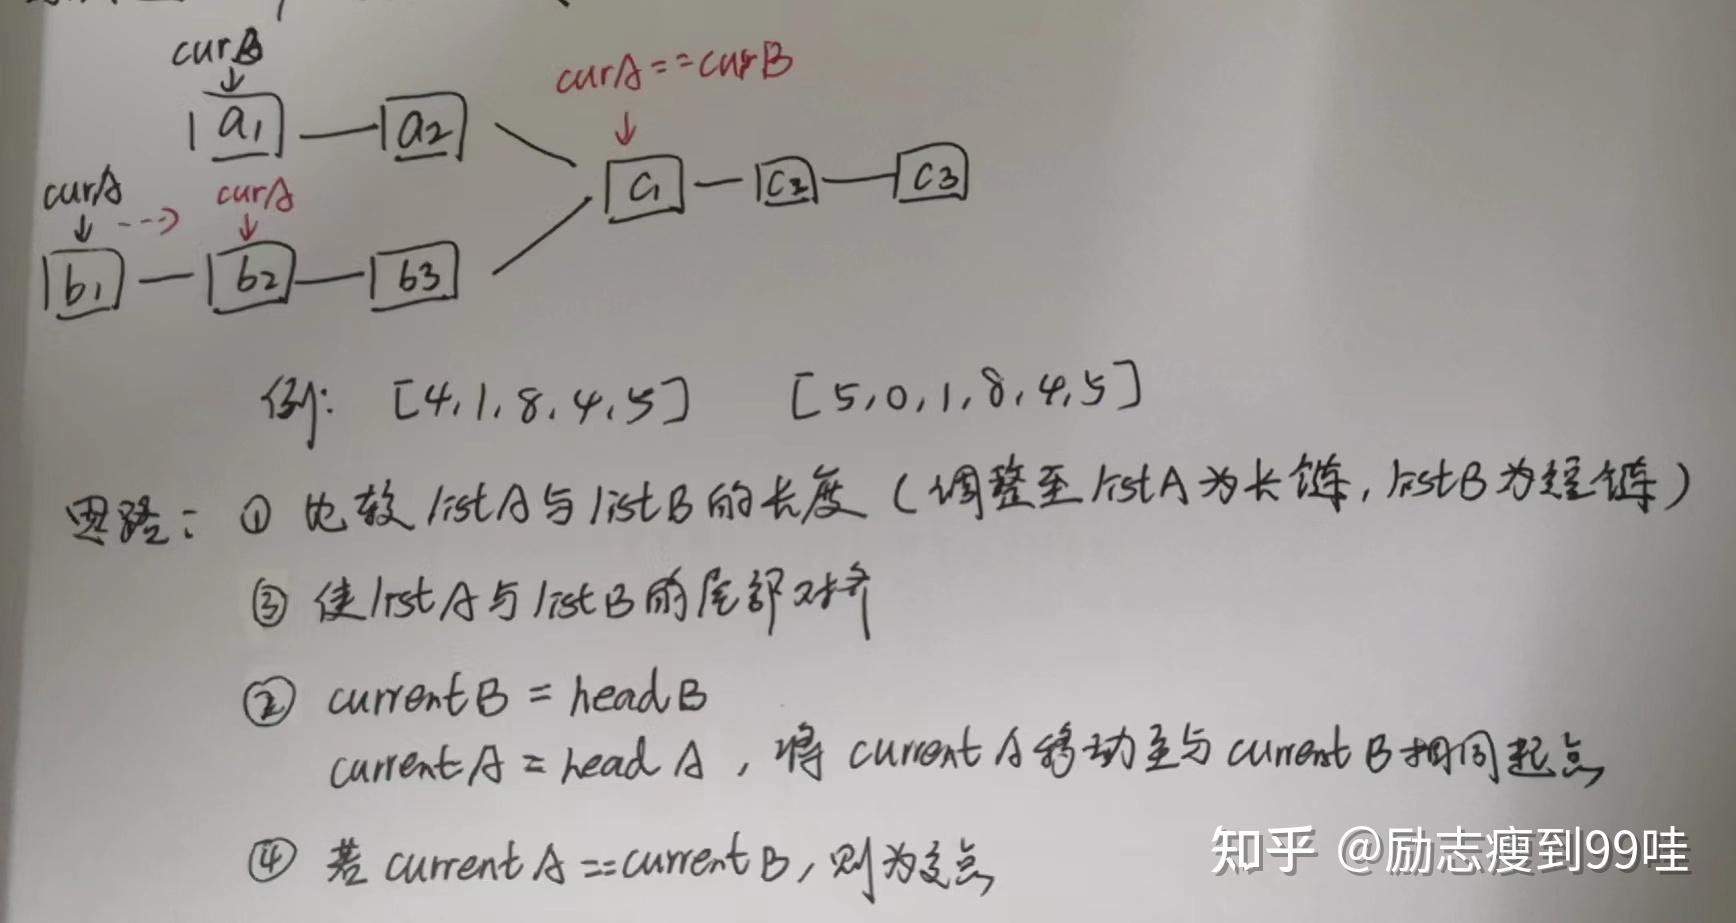 curB
a1 a2
curA==curB
c1 c2 c3
curA curA
b1 b2 b3
例: [4,1,8,4,5] [5,0,1,8,4,5]
思路: ① 比较listA与listB的长度(调整至listA为长链,listB为短链)
③ 使listA与listB的尾部对齐
② currentB = headB
currentA = headA , 将currentA移动至与currentB相同起点
④ 若currentA==currentB,则为交点
知乎 @励志瘦到99哇